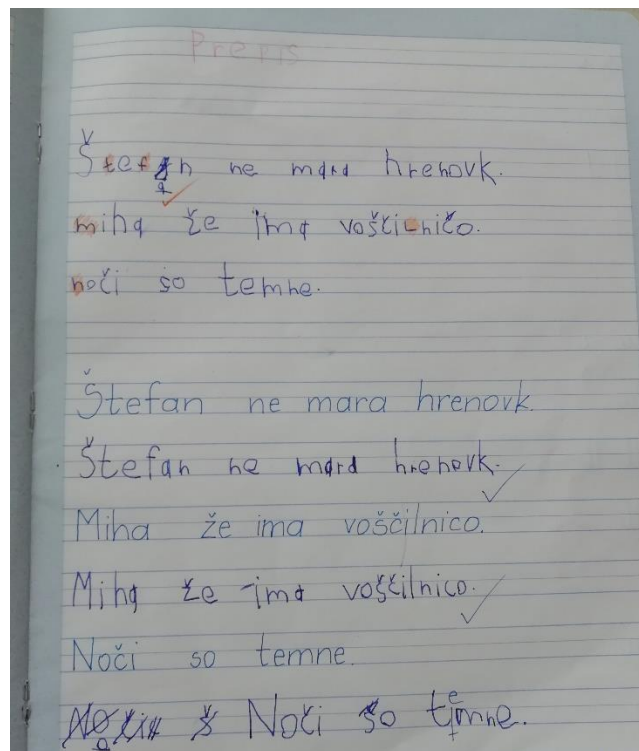 Prepis
Štefan ne mara hrenovk.
miha že ima voščilničo.
noči so temne.
Štefan ne mara hrenovk.
Štefan ne mara hrenovk.
Miha že ima voščilnico.
Miha že ima voščilnico.
Noči so temne.
Noči so temne.